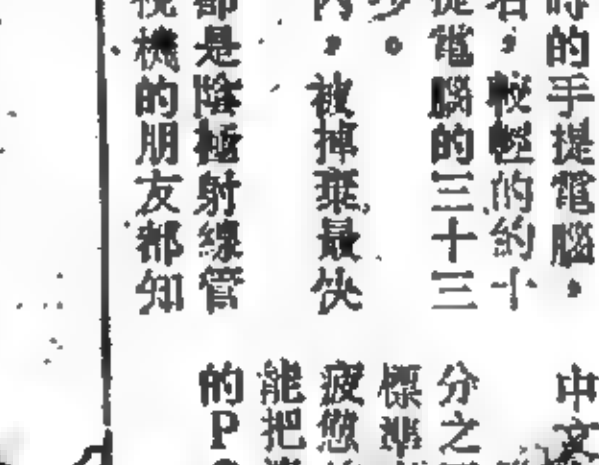 時的手提電腦,
右,較輕的約十
從電腦的三十三
少。
內,被掉棄最快
都是陰極射線管
視機的朋友都知
中文
分之
標準
疲憊
能把
的P